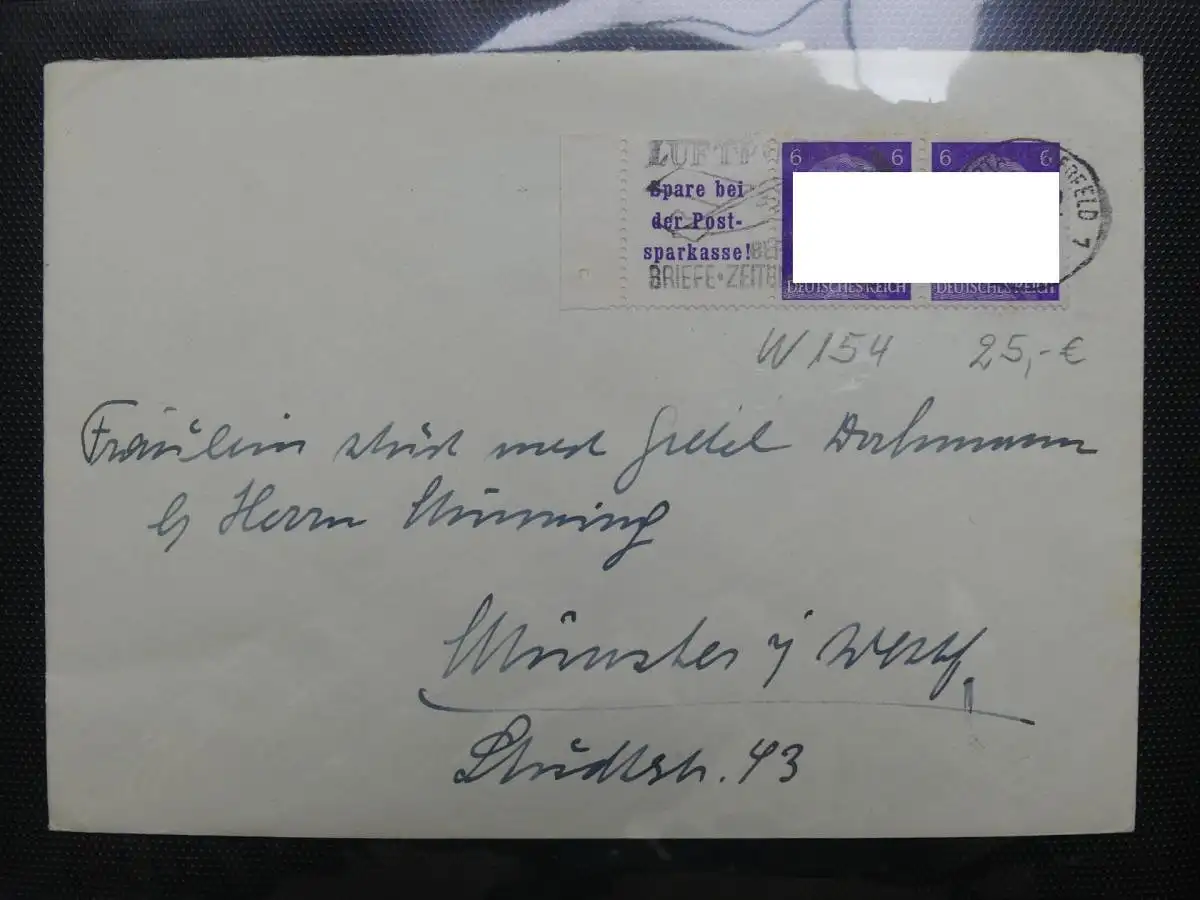 LUFTPO
Spare bei
der Post-
sparkasse!
BRIEFE·ZEITU
6 6
DEUTSCHES REICH
6 6
DEUTSCHES REICH
EDFELD 7
W 154 25,-€
Fräulein stud med Gretel
b/ Herrn
Münster i/ Westf.
Studtstr. 43